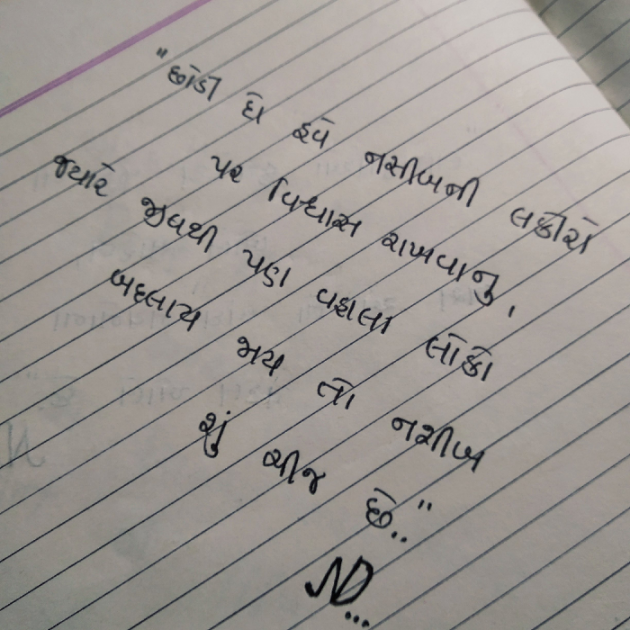 "છોડી દે હવે નસીબની લકીરો
પર વિશ્વાસ રાખવાનું,
જ્યારે જીવથી પણ વહાલા લોકો
બદલાય જાય તો નસીબ
શું ચીજ છે.."
ND...